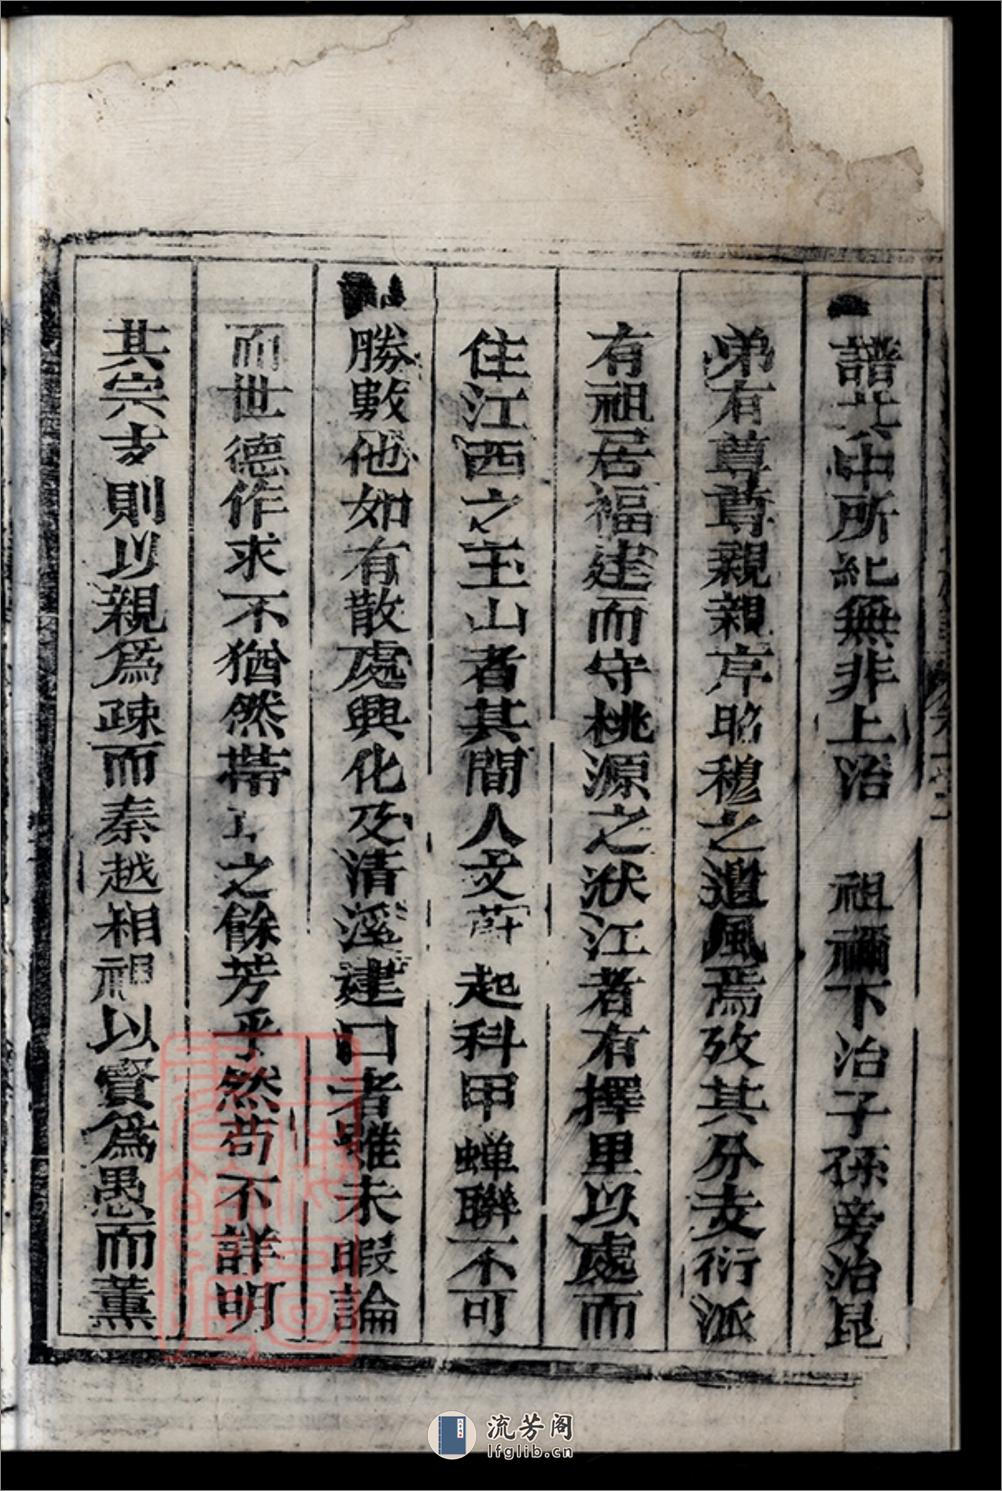 譜其中所紀無非上治 祖禰下治子孫旁治昆
弟有尊尊親親序昭穆之遺風焉攷其分支衍派
有祖居福建而守桃源之洑江者有擇里以處而
住江西之玉山者其間人文蔚起科甲蟬聯不可
勝數他如有散處興化及清溪建口者雖未暇論
而世德作求不猶然帶 之餘芳乎然苟不詳明
其宗支則以親為疎而秦越相視以賢為愚而薰
上海圖書館藏
流芳阁
lfglib.cn